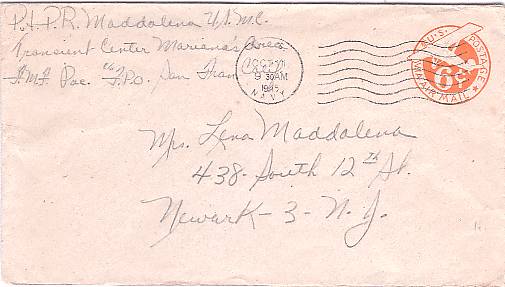 Pvt. P.R. Maddalena U.S.M.C.
Transient Center Marianas Area
F.M.F. Pac. F.P.O. San Fran
OCT
9 30 AM
1945
NAVY
U.S. POSTAGE
6¢
VIA AIR MAIL
Mrs. Lena Maddalena
438-South 12th St.
Newark-3-N.J.